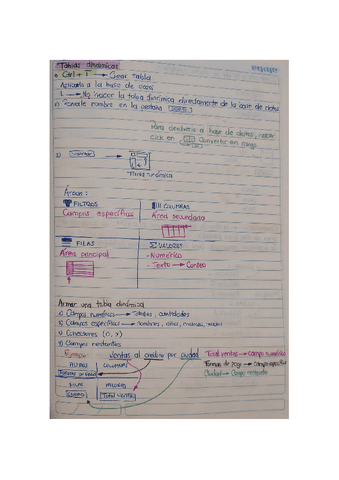 Tablas dinámicas
Ctrl + T → Crear tabla
a la base de
→ No hacer la tabla dinámica directamente de la base de datos
nombre en la pestaña
Para a base de datos,
click en Convertir en rango
2) Insertar →
Tabla dinámica
Áreas:
FILTROS
Campos específicos
III COLUMNAS
Área secundaria
FILAS
Área principal
Σ VALORES
- Numérico
- Texto → Conteo
Armar una tabla dinámica
1) Campo numérico → Totales, cantidades
2) Campos específicos → nombres, años, meses,
3) Conectores (O, Y)
4) Campos restantes
Ejemplo: Ventas al por ciudad
Total ventas → Campo numérico
Formas de pago → Campo específico
Ciudad → Campo restante
FILTROS
COLUMNAS
FILAS
Ciudad
VALORES
Total ventas